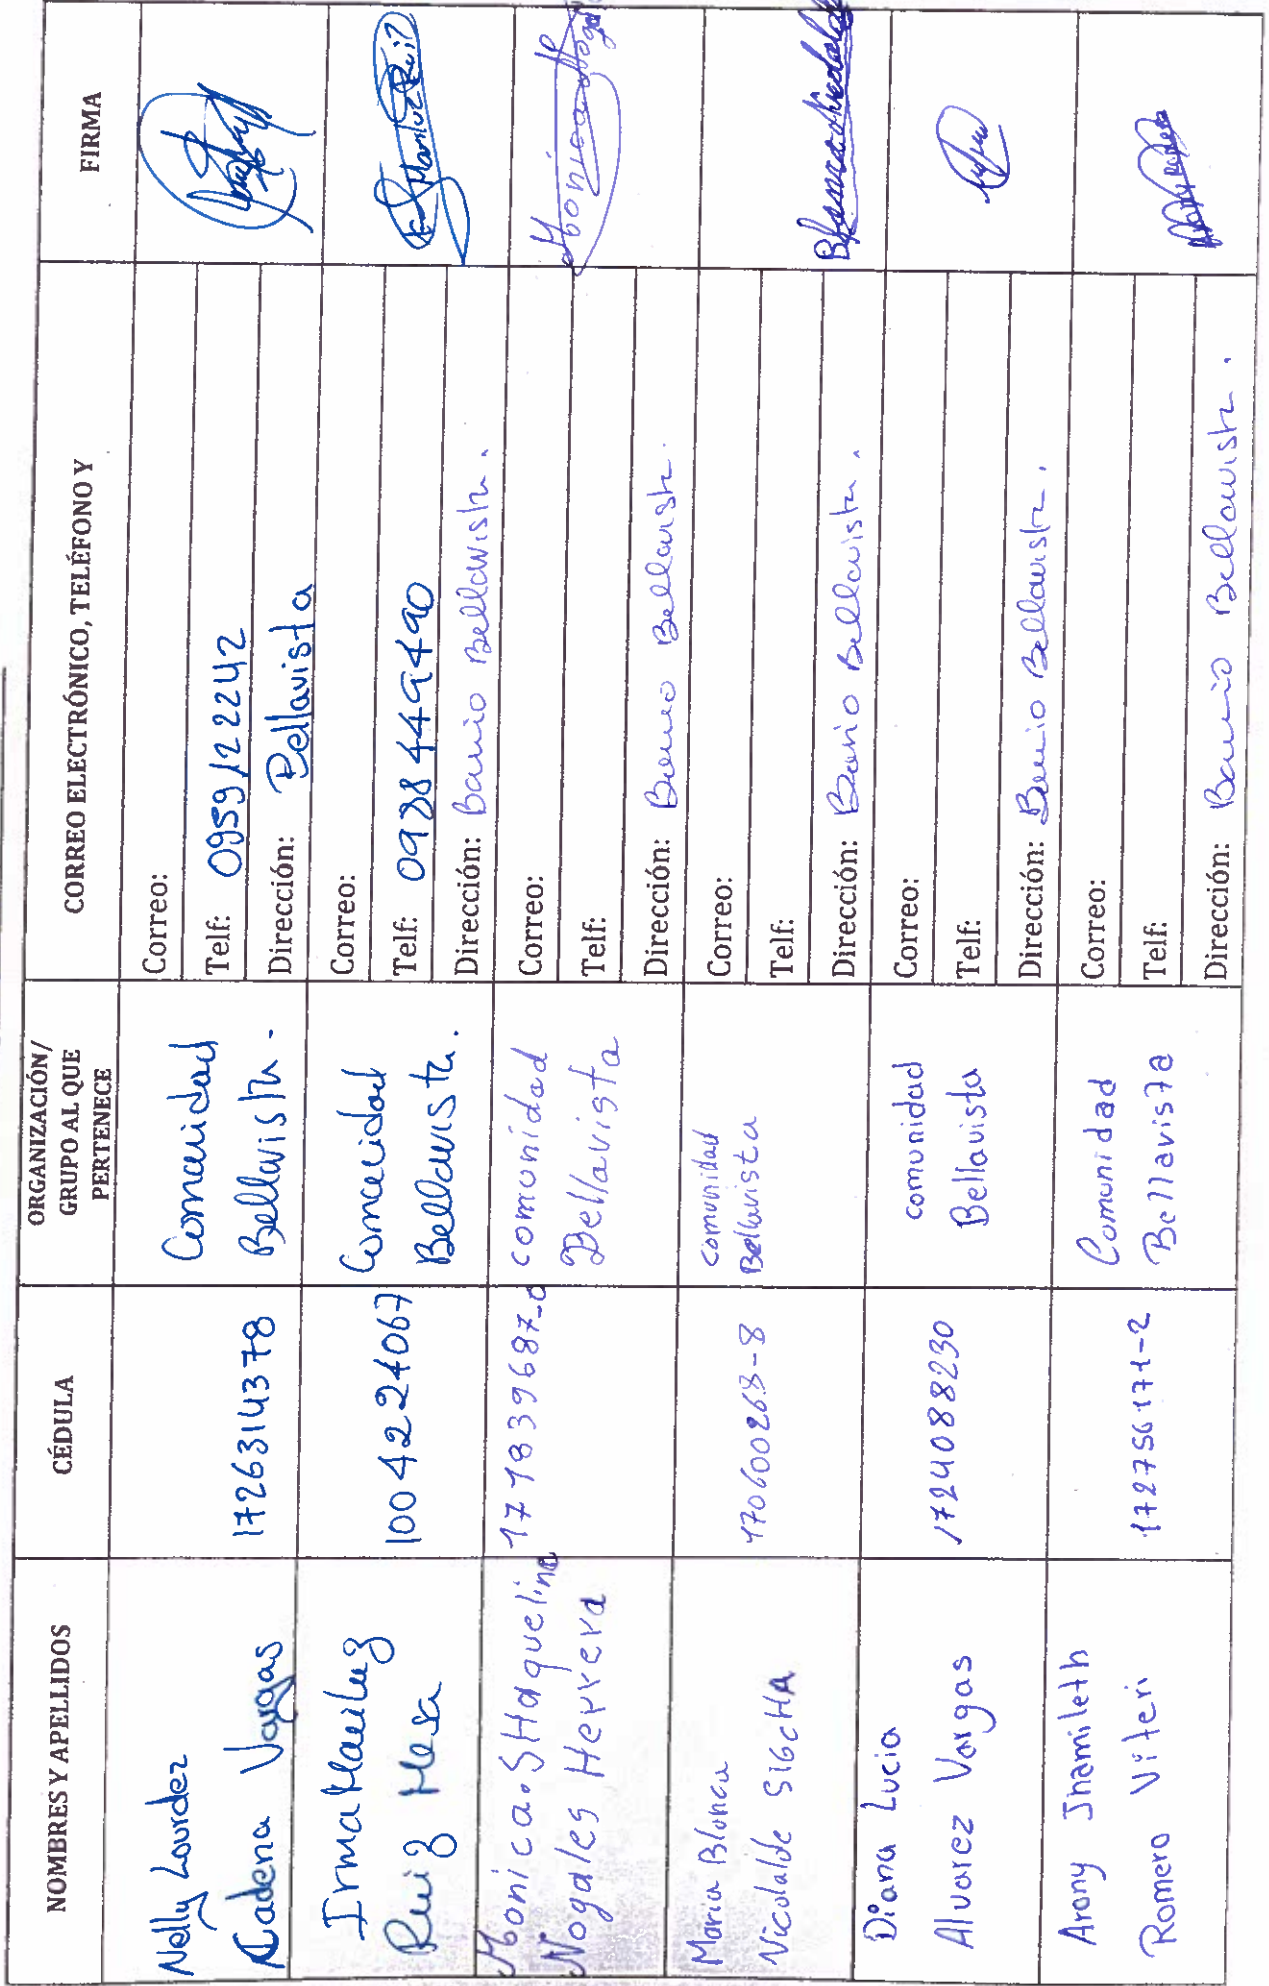 NOMBRES Y APELLIDOS
CÉDULA
ORGANIZACIÓN/
GRUPO AL QUE
PERTENECE
CORREO ELECTRÓNICO, TELÉFONO Y
FIRMA
Nelly Lourdez
Cadena Vargas
1726314378
Comunidad
Bellavista.
Correo:
Telf: 0959122242
Dirección: Bellavista
Irma Mariluz
Ruiz Mesa
1004224067
Comunidad
Bellavista.
Correo:
Telf: 0988449490
Dirección: Barrio Bellavista.
Monica. SHaquelina
Nogales Herrera
171839687-0
comunidad
Bellavista
Correo:
Telf:
Dirección: Barrio Bellavista.
Monica Nogal
Maria Blanca
Nicolalde SIGCHA
170600268-8
comunidad
Bellavista
Correo:
Telf:
Dirección: Barrio Bellavista.
Blanca Nicolalde
Diana Lucia
Alvarez Vargas
1724088230
comunidad
Bellavista
Correo:
Telf:
Dirección: Barrio Bellavista.
Arony Jhamileth
Romero Viteri
172756171-2
Comunidad
Bellavista
Correo:
Telf:
Dirección: Barrio Bellavista.